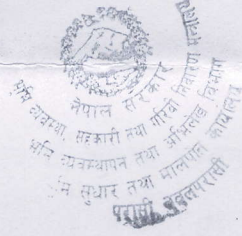 नेपाल सरकार
भूमि व्यवस्था, सहकारी तथा गरिबी निवारण
भूमि व्यवस्थापन तथा अभिलेख विभाग
भूमि सुधार तथा मालपोत कार्यालय
परासी, नवलपरासी